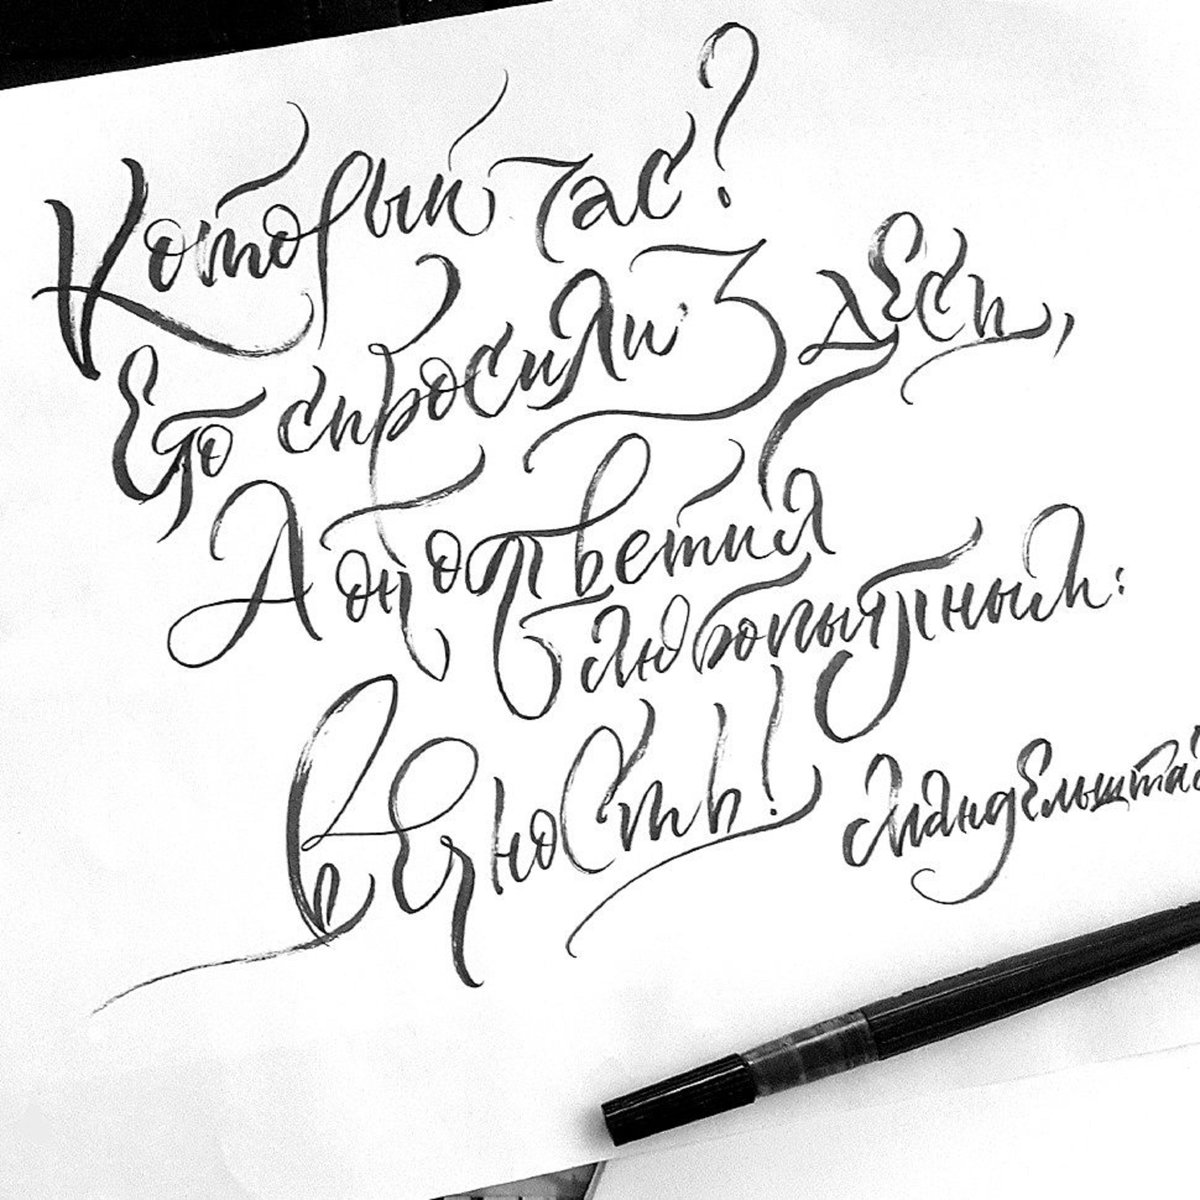 Который час?
Его спросили здесь,
А он ответил
любопытным:
вечность!
Мандельшта